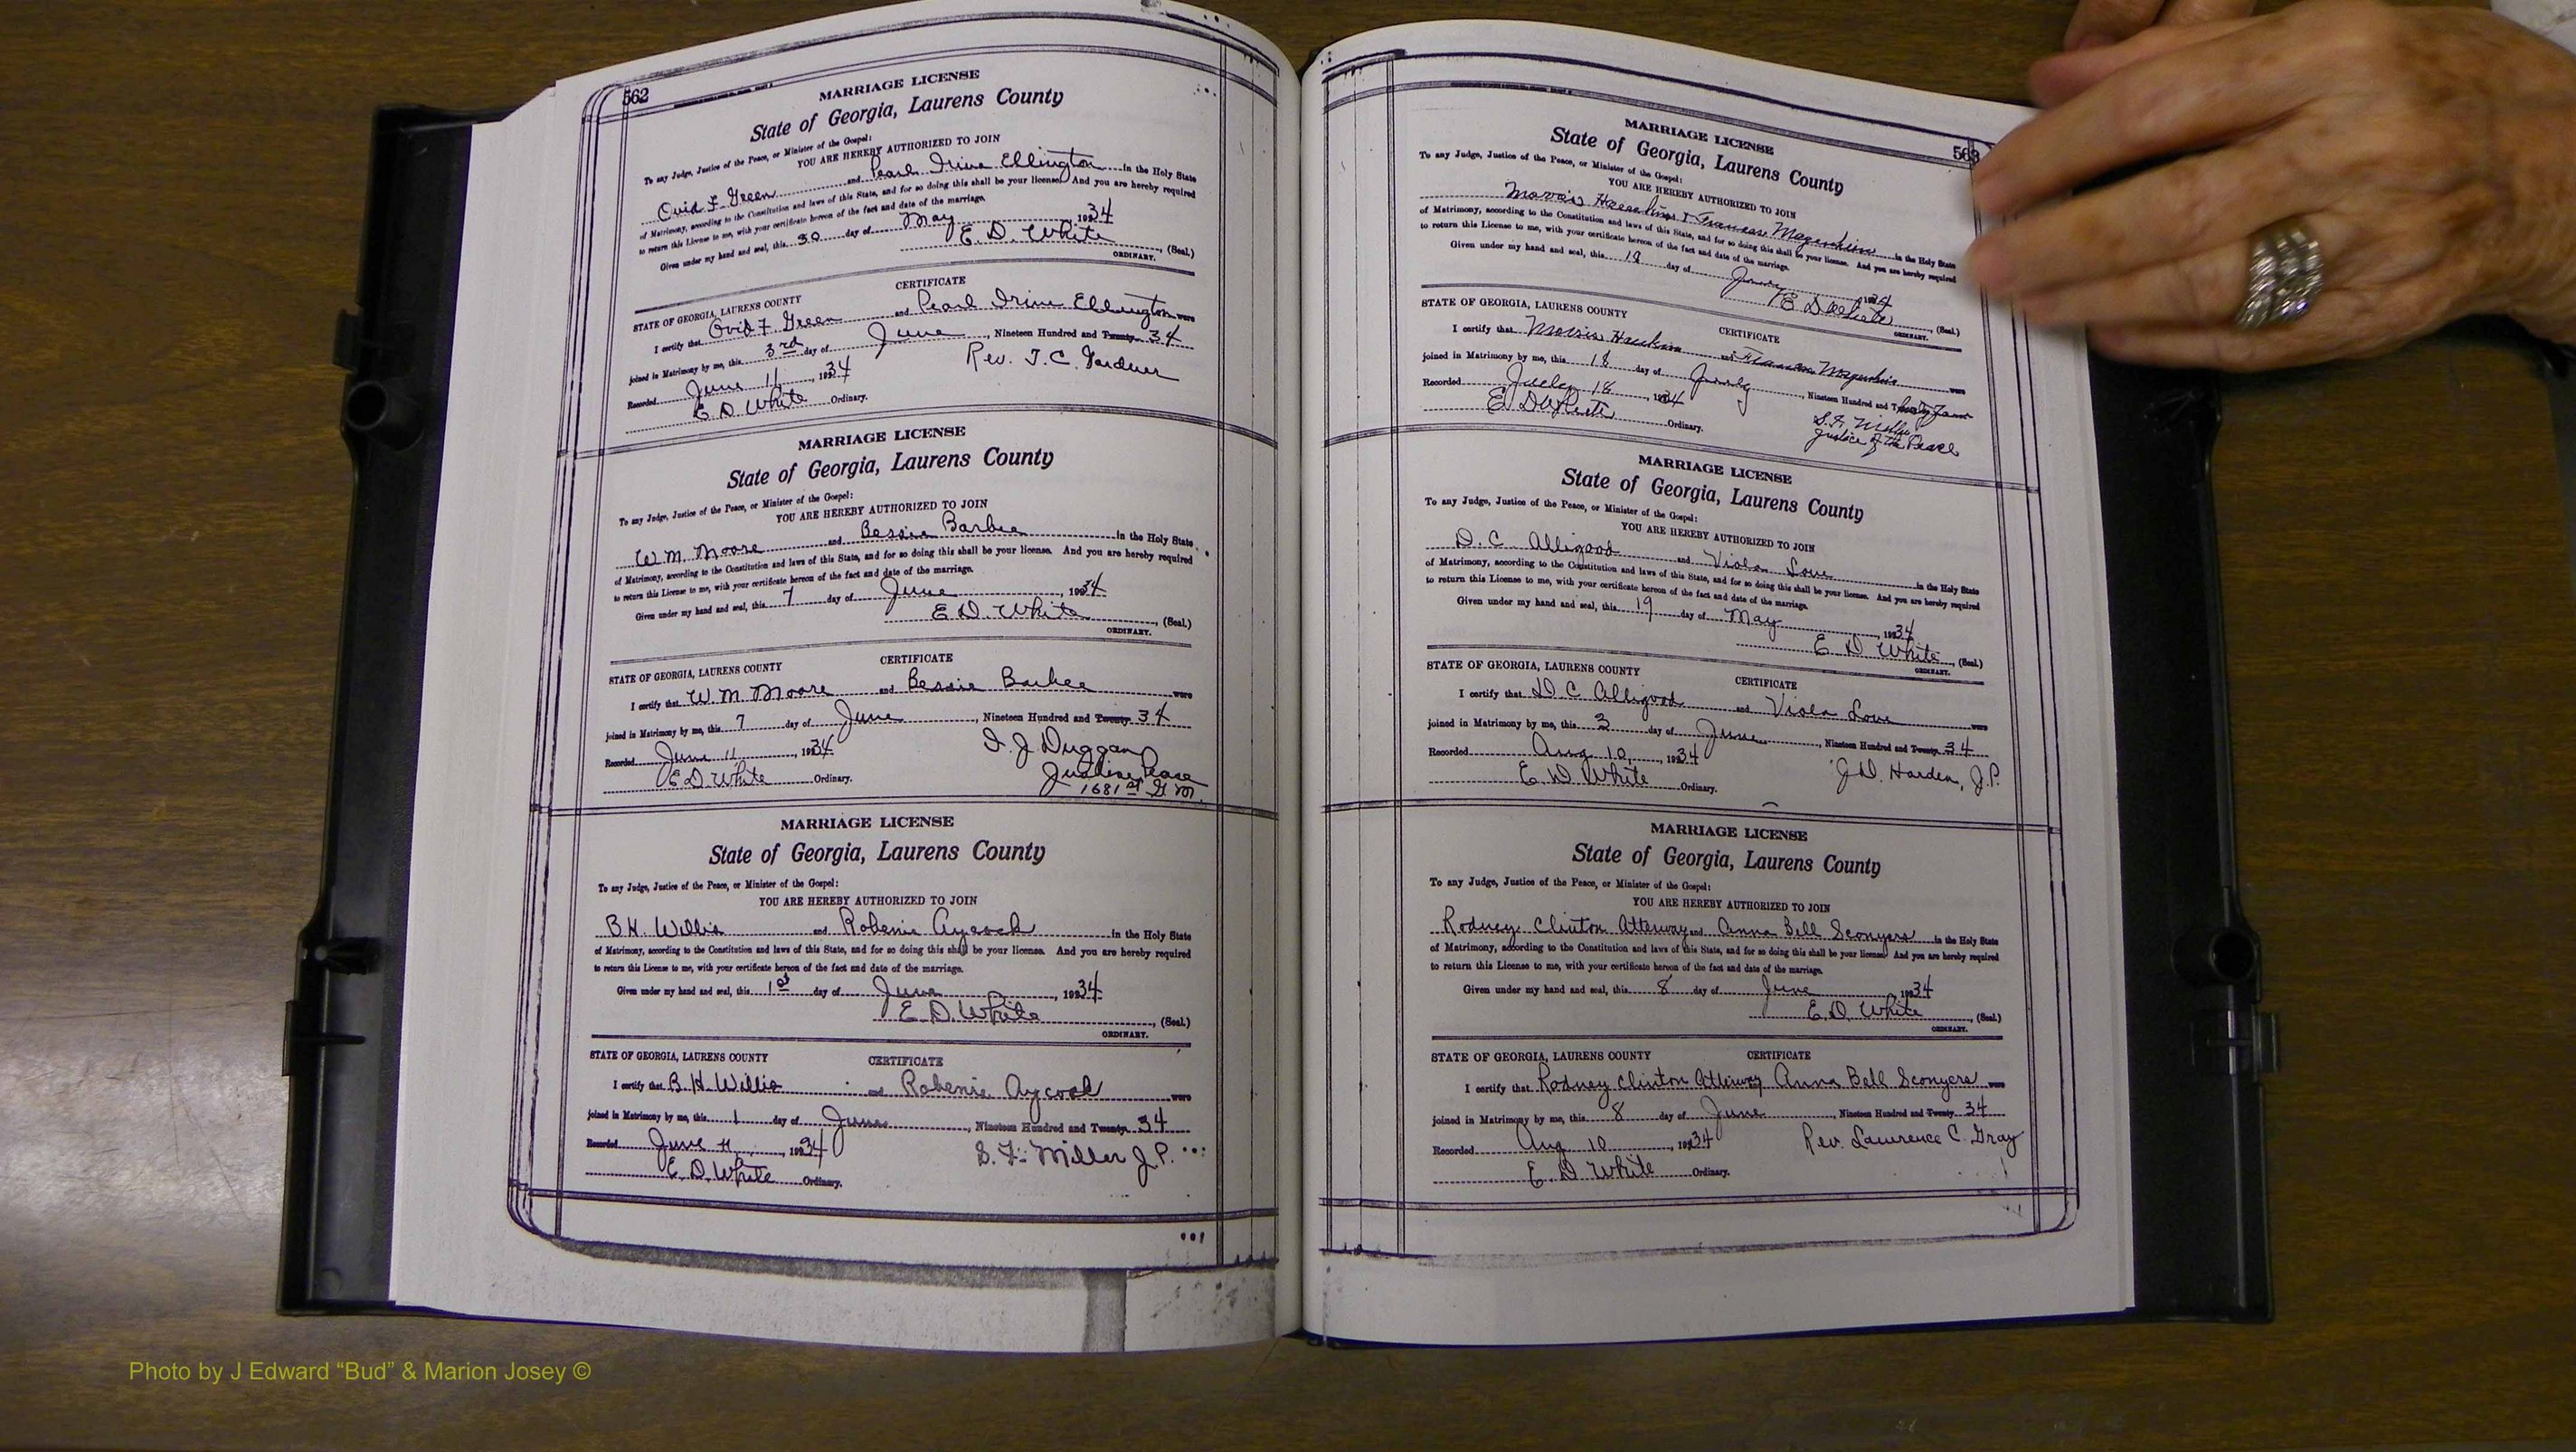 562
MARRIAGE LICENSE
State of Georgia, Laurens County
To any Judge, Justice of the Peace, or Minister of the Gospel:
YOU ARE HEREBY AUTHORIZED TO JOIN
Ovid F Green and Pearl Irine Ellington in the Holy State
of Matrimony, according to the Constitution and laws of this State, and for so doing this shall be your license. And you are hereby required
to return this License to me, with your certificate hereon of the fact and date of the marriage.
Given under my hand and seal, this 30 day of May, 1934
E. D. White, (Seal.)
ORDINARY.
CERTIFICATE
STATE OF GEORGIA, LAURENS COUNTY
I certify that Ovid F. Green and Pearl Irine Ellington were
joined in Matrimony by me, this 3rd day of June, Nineteen Hundred and Twenty 34
Recorded June 11, 1934 Rev. T. C. Vardner
E. D. White Ordinary.
MARRIAGE LICENSE
State of Georgia, Laurens County
To any Judge, Justice of the Peace, or Minister of the Gospel:
YOU ARE HEREBY AUTHORIZED TO JOIN
W. M. Moore and Bessie Barbee in the Holy State
of Matrimony, according to the Constitution and laws of this State, and for so doing this shall be your license. And you are hereby required
to return this License to me, with your certificate hereon of the fact and date of the marriage.
Given under my hand and seal, this 7 day of June, 1934
E. D. White, (Seal.)
ORDINARY.
CERTIFICATE
STATE OF GEORGIA, LAURENS COUNTY
I certify that W. M. Moore and Bessie Barbee were
joined in Matrimony by me, this 7 day of June, Nineteen Hundred and Twenty 34
Recorded June 11, 1934 I. J. Duggan
E. D. White Ordinary. Justice Peace
1681st G. M.
MARRIAGE LICENSE
State of Georgia, Laurens County
To any Judge, Justice of the Peace, or Minister of the Gospel:
YOU ARE HEREBY AUTHORIZED TO JOIN
B. H. Willis and Robenia Aycock in the Holy State
of Matrimony, according to the Constitution and laws of this State, and for so doing this shall be your license. And you are hereby required
to return this License to me, with your certificate hereon of the fact and date of the marriage.
Given under my hand and seal, this 1st day of June, 1934
E. D. White, (Seal.)
ORDINARY.
STATE OF GEORGIA, LAURENS COUNTY CERTIFICATE
I certify that B. H. Willis and Robenia Aycock were
joined in Matrimony by me, this 1 day of June, Nineteen Hundred and Twenty 34
Recorded June 11, 1934 S. F. Miller J. P.
E. D. White Ordinary.
563
MARRIAGE LICENSE
State of Georgia, Laurens County
To any Judge, Justice of the Peace, or Minister of the Gospel:
YOU ARE HEREBY AUTHORIZED TO JOIN
Morris & Frances in the Holy State
of Matrimony, according to the Constitution and laws of this State, and for so doing this shall be your license. And you are hereby required
to return this License to me, with your certificate hereon of the fact and date of the marriage.
Given under my hand and seal, this 18 day of 1934
E. D. White, (Seal.)
ORDINARY.
STATE OF GEORGIA, LAURENS COUNTY CERTIFICATE
I certify that Morris and Frances were
joined in Matrimony by me, this 18 day of July, Nineteen Hundred and
Recorded July 18, 1934 S. F. Miller
E. D. White Ordinary. Justice of the Peace
MARRIAGE LICENSE
State of Georgia, Laurens County
To any Judge, Justice of the Peace, or Minister of the Gospel:
YOU ARE HEREBY AUTHORIZED TO JOIN
D. C. Alligood and Viola Love in the Holy State
of Matrimony, according to the Constitution and laws of this State, and for so doing this shall be your license. And you are hereby required
to return this License to me, with your certificate hereon of the fact and date of the marriage.
Given under my hand and seal, this 19 day of May, 1934
E. D. White, (Seal.)
ORDINARY.
STATE OF GEORGIA, LAURENS COUNTY CERTIFICATE
I certify that D C Alligood and Viola Love were
joined in Matrimony by me, this 3 day of June, Nineteen Hundred and Twenty 34
Recorded Aug 10, 1934 J. D. Harden, J. P.
E. D. White Ordinary.
MARRIAGE LICENSE
State of Georgia, Laurens County
To any Judge, Justice of the Peace, or Minister of the Gospel:
YOU ARE HEREBY AUTHORIZED TO JOIN
Rodney Clinton Atterway and Anna Bell Sconyers in the Holy State
of Matrimony, according to the Constitution and laws of this State, and for so doing this shall be your license. And you are hereby required
to return this License to me, with your certificate hereon of the fact and date of the marriage.
Given under my hand and seal, this 8 day of June, 1934
E. D. White, (Seal.)
ORDINARY.
STATE OF GEORGIA, LAURENS COUNTY CERTIFICATE
I certify that Rodney Clinton Atterway Anna Bell Sconyers were
joined in Matrimony by me, this 8 day of June, Nineteen Hundred and Twenty 34
Recorded Aug 10, 1934 Rev. Lawrence C. Gray
E. D. White Ordinary.
Photo by J Edward “Bud” & Marion Josey ©